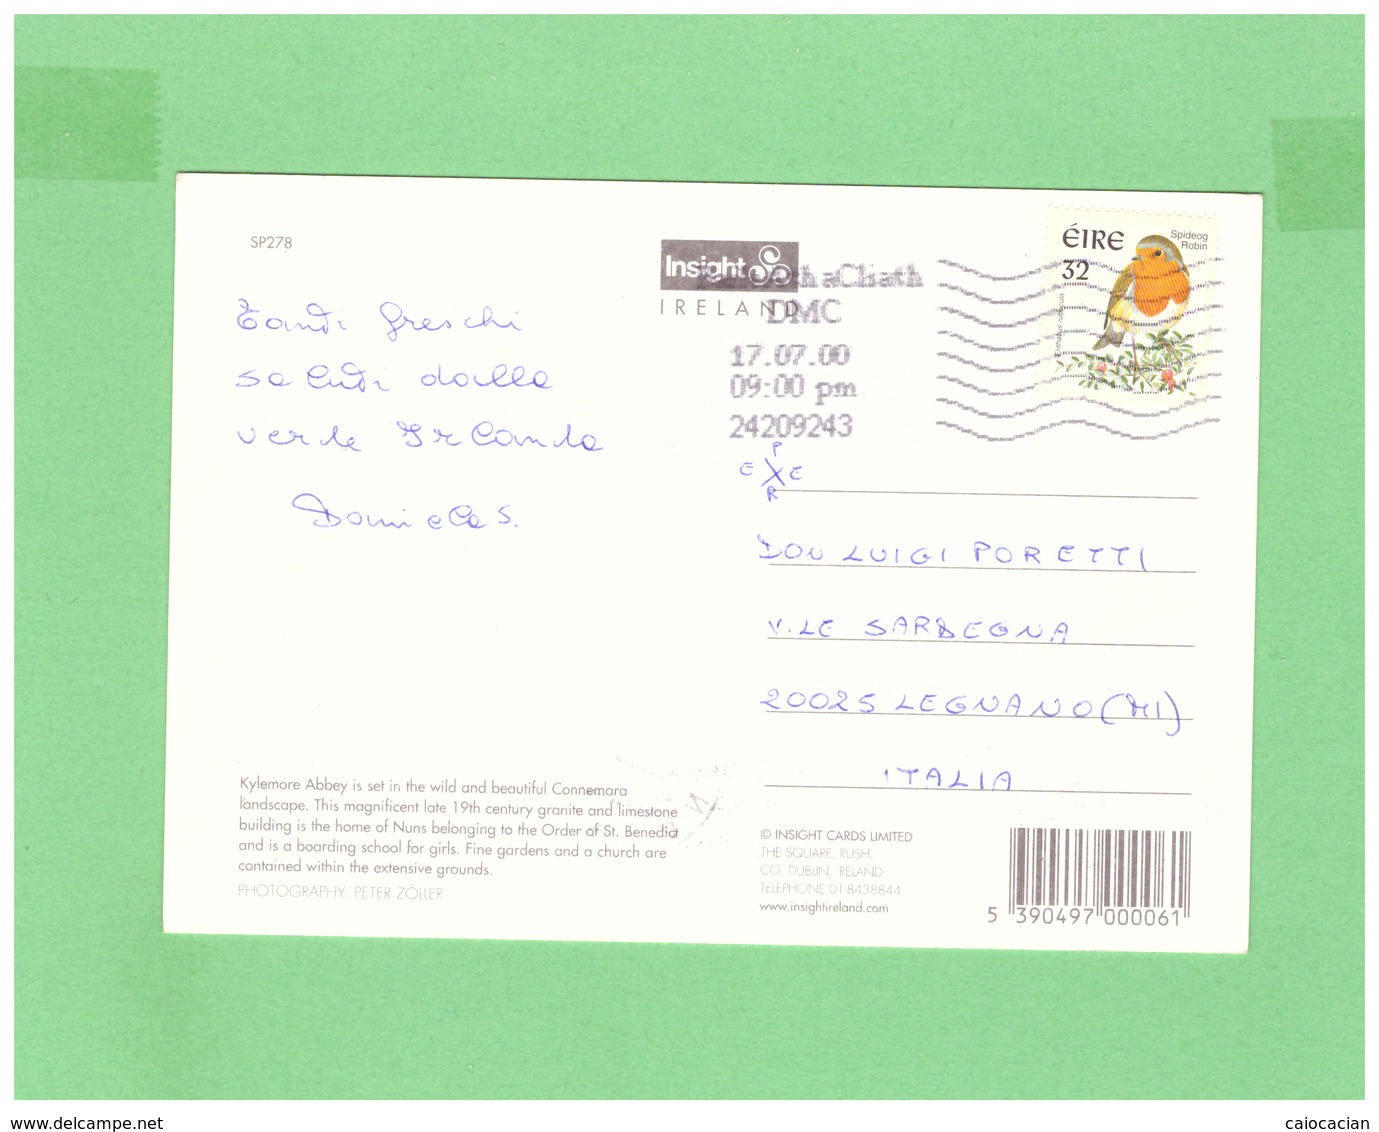 SP278
Insight
IRELAND
ÉIRE
32
Spideog
Robin
Erithacus rubecula
DMC
17.07.00
09:00 pm
24209243
Tanti freschi
saluti dalla
verde Irlanda
Daniela S.
P
E X E
R
DON LUIGI PORETTI
V.LE SARDEGNA
20025 LEGNANO (MI)
ITALIA
Kylemore Abbey is set in the wild and beautiful Connemara
landscape. This magnificent late 19th century granite and limestone
building is the home of Nuns belonging to the Order of St. Benedict
and is a boarding school for girls. Fine gardens and a church are
contained within the extensive grounds.
PHOTOGRAPHY: PETER ZÖLLER
© INSIGHT CARDS LIMITED
THE SQUARE, RUSH,
CO. DUBLIN, IRELAND
TELEPHONE 01-8438844
www.insightireland.com
5 390497 000061
www.delcampe.net
caiocacian